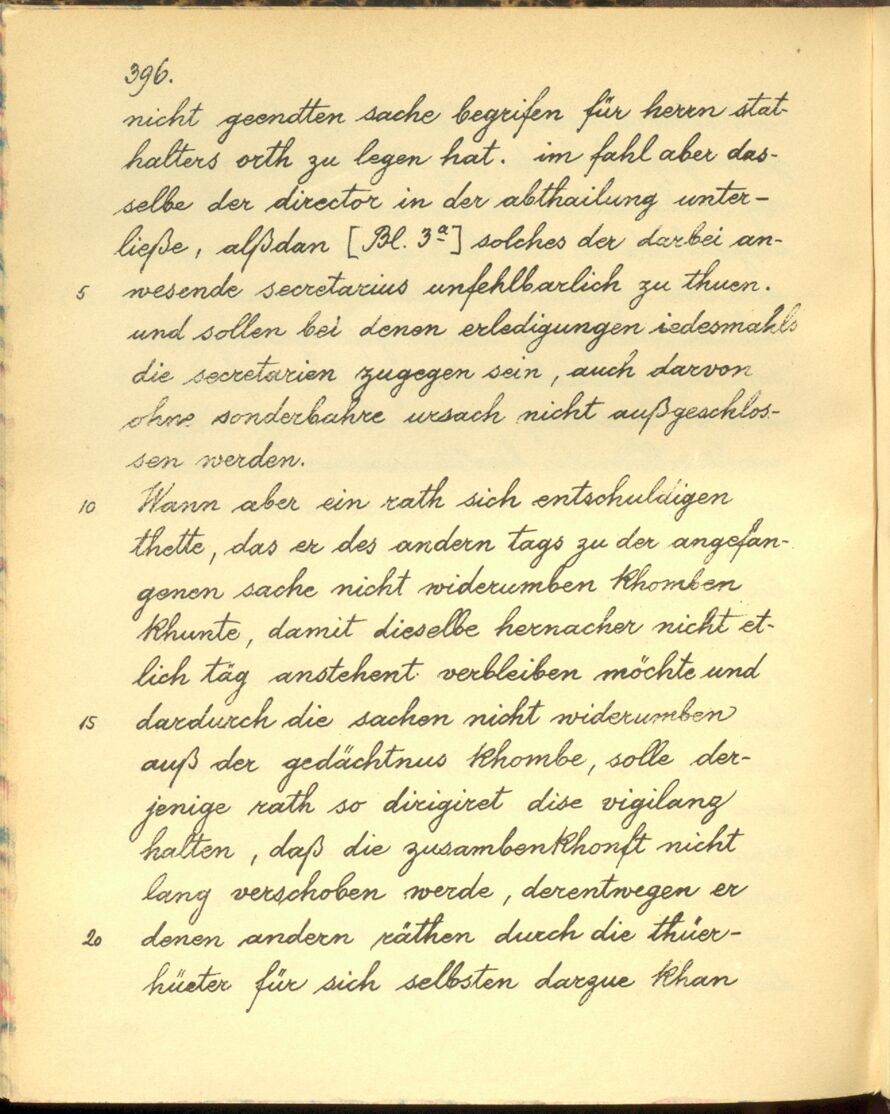 396.
nicht geendten sache begrifen für herrn stat-
halters orth zu legen hat. im fahl aber das-
selbe der director in der abthailung unter-
ließe, alßdan [Bl. 3a] solches der darbei an-
5 wesende secretarius unfehlbarlich zu thuen.
und sollen bei denen erledigungen iedesmahls
die secretarien zugegen sein, auch darvon
ohne sonderbahre ursach nicht außgeschlos-
sen werden.
10 Wann aber ein rath sich entschuldigen
thette, das er des andern tags zu der angefan-
genen sache nicht widerumben khomben
khunte, damit dieselbe hernacher nicht et-
lich täg anstehent verbleiben möchte und
15 dardurch die sachen nicht widerumben
auß der gedächtnus khombe, solle der-
jenige rath so dirigiret dise vigilanz
halten, daß die zusambenkhonft nicht
lang verschoben werde, derentwegen er
20 denen andern räthen durch die thüer-
hüeter für sich selbsten darzue khan